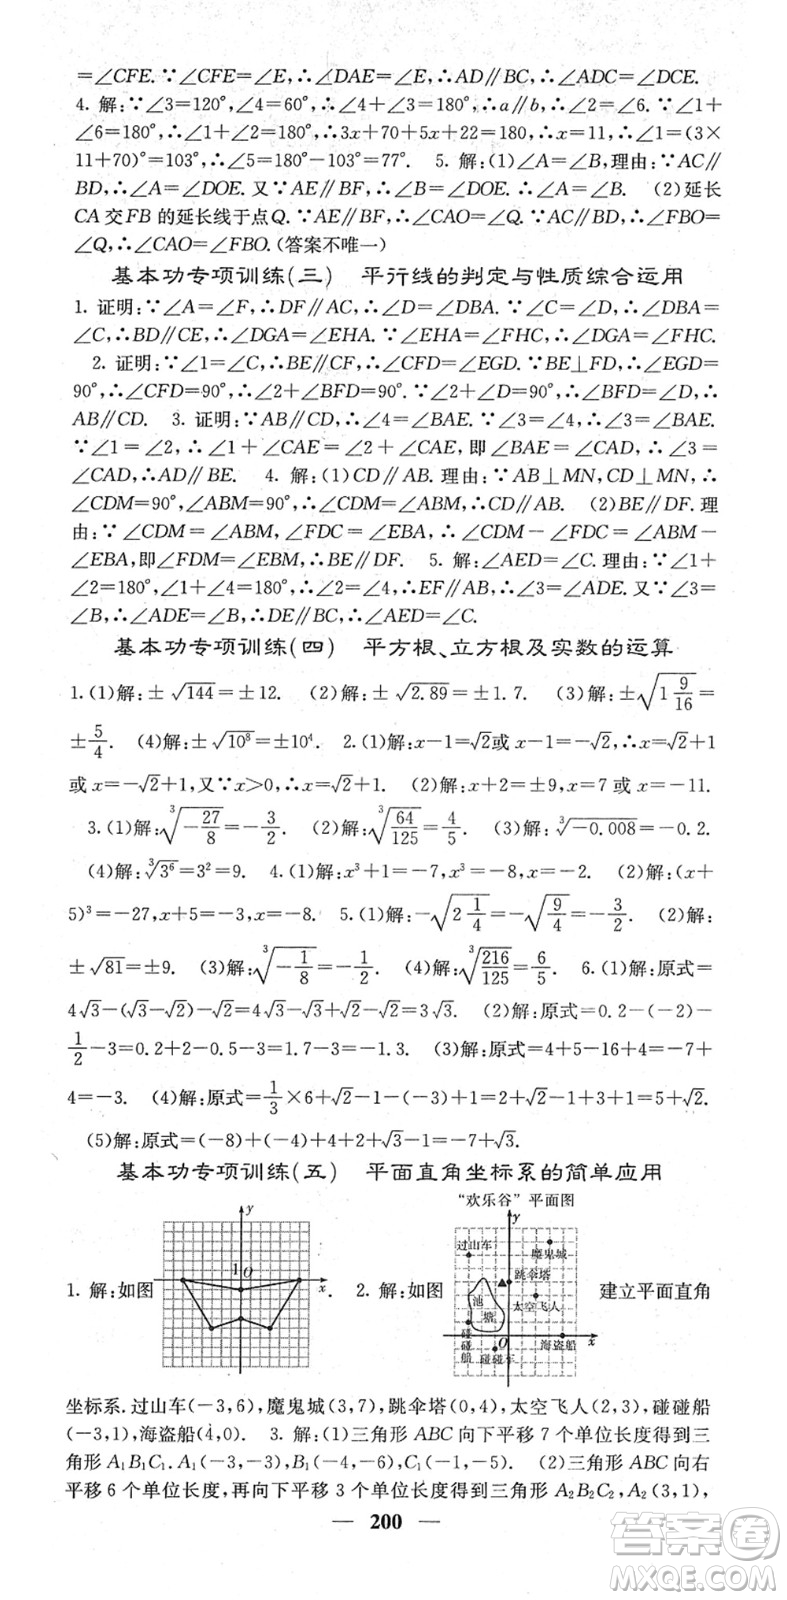 =∠CFE. ∵∠CFE=∠E,∴∠DAE=∠E,∴AD∥BC,∴∠ADC=∠DCE.
4. 解:∵∠3=120°,∠4=60°,∴∠4+∠3=180°,∴a∥b,∴∠2=∠6. ∵∠1+
∠6=180°,∴∠1+∠2=180°,∴3x+70+5x+22=180,∴x=11,∴∠1=(3×
11+70)°=103°,∴∠2=180°-103°=77°. 5. 解:(1)∠A=∠B,理由:∵AC∥
BD,∴∠A=∠DOE. 又∵AE∥BF,∴∠B=∠DOE,∴∠A=∠B. (2)延长
CA 交 FB 的延长线于点 Q. ∵AE∥BF,∴∠CAO=∠Q. ∵AC∥BD,∴∠FBO=
∠Q,∴∠CAO=∠FBO. (答案不唯一)
基本功专项训练(三) 平行线的判定与性质综合运用
1. 证明:∵∠A=∠F,∴DF∥AC,∴∠D=∠DBA. ∵∠C=∠D,∴∠DBA=
∠C,∴DB∥CE,∴∠DGA=∠EHA. ∵∠EHA=∠FHC,∴∠DGA=∠FHC.
2. 证明:∵∠1=∠C,∴BE∥CF,∴∠CFD=∠EGD. ∵BE⊥FD,∴∠EGD=
90°,∴∠CFD=90°,∴∠2+∠BFD=90°. ∵∠2+∠D=90°,∴∠BFD=∠D,∴
AB∥CD. 3. 证明:∵AB∥CD,∴∠4=∠BAE. ∵∠3=∠4,∴∠3=∠BAE.
∵∠1=∠2,∴∠1+∠CAE=∠2+∠CAE,即∠BAE=∠CAD,∴∠3=
∠CAD,∴AD∥BE. 4. 解:(1)CD∥AB. 理由:∵AB⊥MN,CD⊥MN,∴
∠CDM=90°,∠ABM=90°,∴∠CDM=∠ABM,∴CD∥AB. (2)BE∥DF. 理
由:∵∠CDM=∠ABM,∠FDC=∠EBA,∴∠CDM-∠FDC=∠ABM-
∠EBA,即∠FDM=∠EBM,∴BE∥DF. 5. 解:∠AED=∠C. 理由:∵∠1+
∠2=180°,∠1+∠4=180°,∴∠2=∠4,∴EF∥AB,∴∠3=∠ADE. 又∵∠3=
∠B,∴∠ADE=∠B,∴DE∥BC,∴∠AED=∠C.
基本功专项训练(四) 平方根、立方根及实数的运算
1. (1)解:±√144=±12. (2)解:±√2.89=±1.7. (3)解:±√(1 9/16)=
±5/4. (4)解:±√10⁸=±10⁴. 2. (1)解:x-1=√2或 x-1=-√2,∴x=√2+1
或 x=-√2+1,又∵x>0,∴x=√2+1. (2)解:x+2=±9,x=7 或 x=-11.
3. (1)解:∛(-27/8)=-3/2. (2)解:∛(64/125)=4/5. (3)解:∛-0.008=-0.2.
(4)解:∛3⁶=3²=9. 4. (1)解:x³+1=-7,x³=-8,x=-2. (2)解:(x+
5)³=-27,x+5=-3,x=-8. 5. (1)解:-√(2 1/4)=-√(9/4)=-3/2. (2)解:
±√81=±9. (3)解:∛(-1/8)=-1/2. (4)解:∛(216/125)=6/5. 6. (1)解:原式=
4√3-(√3-√2)-√2=4√3-√3+√2-√2=3√3. (2)解:原式=0.2-(-2)-
1/2-3=0.2+2-0.5-3=1.7-3=-1.3. (3)解:原式=4+5-16+4=-7+
4=-3. (4)解:原式=1/3×6+√2-1-(-3)+1=2+√2-1+3+1=5+√2.
(5)解:原式=(-8)+(-4)+4+2+√2-1=-7+√2.
基本功专项训练(五) 平面直角坐标系的简单应用
“欢乐谷”平面图
y
1
O
x
y
过山车
魔鬼城
跳伞塔
池塘
太空飞人
碰碰船
O
碰碰车
海盗船
x
1. 解:如图 . 2. 解:如图 建立平面直角
坐标系. 过山车(-3,6),魔鬼城(3,7),跳伞塔(0,4),太空飞人(2,3),碰碰船
(-3,1),海盗船(4,0). 3. 解:(1)三角形 ABC 向下平移 7 个单位长度得到三
角形 A₁B₁C₁. A₁(-3,-3),B₁(-4,-6),C₁(-1,-5). (2)三角形 ABC 向右
平移 6 个单位长度,再向下平移 3 个单位长度得到三角形 A₂B₂C₂,A₂(3,1),
— 200 —
答案圈
MXQE.COM